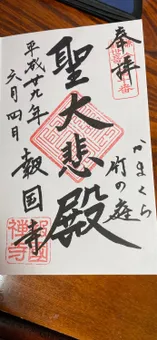 奉拝
かまくら
竹の庭
聖大悲殿
平成廿九年
六月四日
報国寺